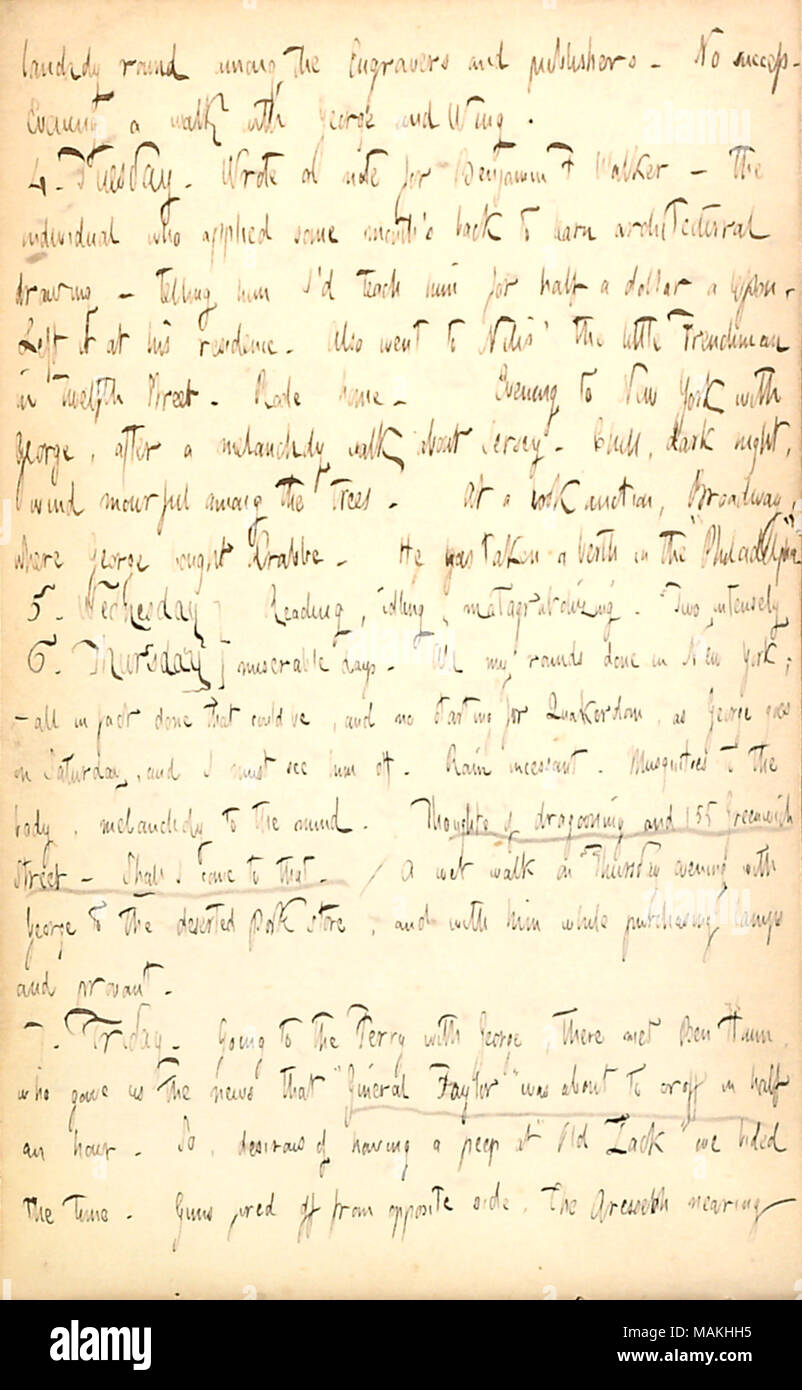 round among the Engravers and publishers – No success –
Evening a walk with George and Wing .
4. Tuesday. Wrote a note for Benjamin F Walker – the
individual who applied some month's back to learn architectural
drawing – telling him I'd teach him for half a dollar a lesson.
Left it at his residence. Also went to the little Frenchman
in Twelfth Street. Rode home – Evening to New York with
George, after a melancholy walk about Jersey. Chill, dark night,
wind mournful among the trees. At a book auction, Broadway,
where George bought Crabbe. He has taken a berth in the "Philadelphia"
5. Wednesday ] Reading, idling, matagrabolizing. Two intensely
6. Thursday ] miserable days. All my rounds done in New York;
– all in fact done that could be, and no starting for Quakerdom, as George goes
on Saturday, and I must see him off. Rain incessant. Musquitoes to the
body, melancholy to the mind. Thoughts of dragooning and 155 Greenwich
Street – Shall I come to that. / A wet walk on Thursday evening with
George to the deserted pork store, and with him while purchasing lamps
and provant.
7. Friday. Going to the Ferry with George, there met Ben
who gave us the news that "Gineral Taylor" was about to in half
an hour. So, desirous of having a peep at "Old Zack" we bided
the time. Guns fired off from opposite side, the nearing
alamy
Image ID: MAKHH5
www.alamy.com